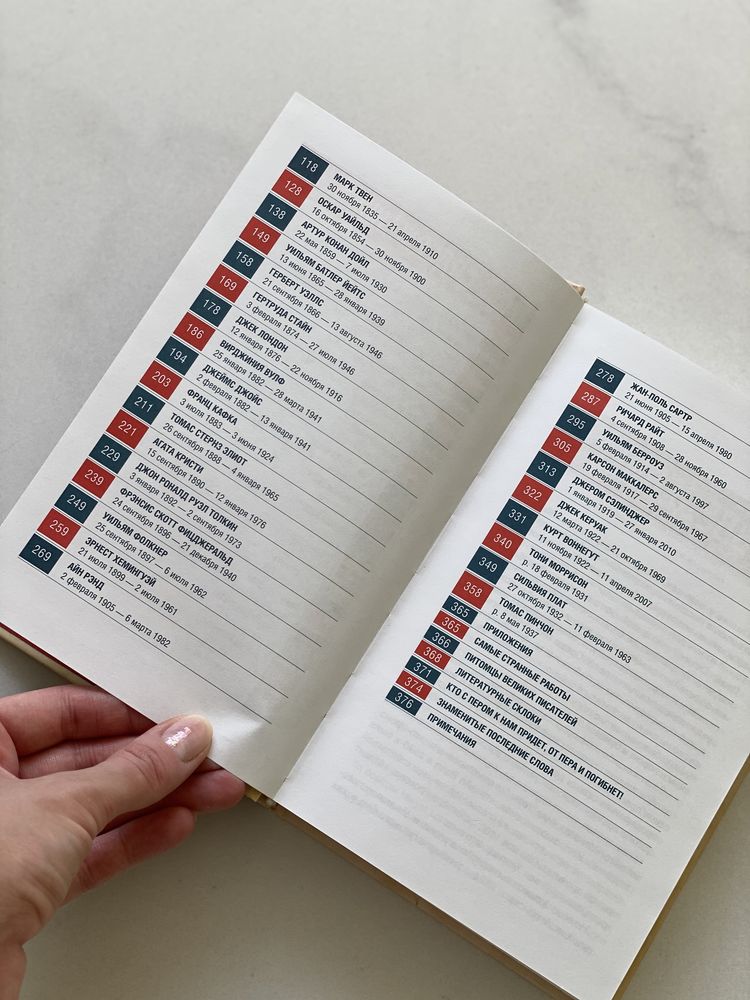 118
МАРК ТВЕН
30 ноября 1835 — 21 апреля 1910
128
ОСКАР УАЙЛЬД
16 октября 1854 — 30 ноября 1900
138
АРТУР КОНАН ДОЙЛ
22 мая 1859 — 7 июля 1930
149
УИЛЬЯМ БАТЛЕР ЙЕЙТС
13 июня 1865 — 28 января 1939
158
ГЕРБЕРТ УЭЛЛС
21 сентября 1866 — 13 августа 1946
169
ГЕРТРУДА СТАЙН
3 февраля 1874 — 27 июля 1946
178
ДЖЕК ЛОНДОН
12 января 1876 — 22 ноября 1916
186
ВИРДЖИНИЯ ВУЛФ
25 января 1882 — 28 марта 1941
194
ДЖЕЙМС ДЖОЙС
2 февраля 1882 — 13 января 1941
203
ФРАНЦ КАФКА
3 июля 1883 — 3 июня 1924
211
ТОМАС СТЕРНЗ ЭЛИОТ
26 сентября 1888 — 4 января 1965
221
АГАТА КРИСТИ
15 сентября 1890 — 12 января 1976
229
ДЖОН РОНАЛД РУЭЛ ТОЛКИН
3 января 1892 — 2 сентября 1973
239
ФРЭНСИС СКОТТ ФИЦДЖЕРАЛЬД
24 сентября 1896 — 21 декабря 1940
249
УИЛЬЯМ ФОЛКНЕР
25 сентября 1897 — 6 июля 1962
259
ЭРНЕСТ ХЕМИНГУЭЙ
21 июля 1899 — 2 июля 1961
269
АЙН РЭНД
2 февраля 1905 — 6 марта 1982
278
ЖАН-ПОЛЬ САРТР
21 июня 1905 — 15 апреля 1980
287
РИЧАРД РАЙТ
4 сентября 1908 — 28 ноября 1960
295
УИЛЬЯМ БЕРРОУЗ
5 февраля 1914 — 2 августа 1997
305
КАРСОН МАККАЛЕРС
19 февраля 1917 — 29 сентября 1967
313
ДЖЕРОМ СЭЛИНДЖЕР
1 января 1919 — 27 января 2010
322
ДЖЕК КЕРУАК
12 марта 1922 — 21 октября 1969
331
КУРТ ВОННЕГУТ
11 ноября 1922 — 11 апреля 2007
340
ТОНИ МОРРИСОН
р. 18 февраля 1931
349
СИЛЬВИЯ ПЛАТ
27 октября 1932 — 11 февраля 1963
358
ТОМАС ПИНЧОН
р. 8 мая 1937
365
ПРИЛОЖЕНИЯ
365
САМЫЕ СТРАННЫЕ РАБОТЫ
366
ПИТОМЦЫ ВЕЛИКИХ ПИСАТЕЛЕЙ
368
ЛИТЕРАТУРНЫЕ СКЛОКИ
371
КТО С ПЕРОМ К НАМ ПРИДЕТ, ОТ ПЕРА И ПОГИБНЕТ!
374
ЗНАМЕНИТЫЕ ПОСЛЕДНИЕ СЛОВА
376
ПРИМЕЧАНИЯ